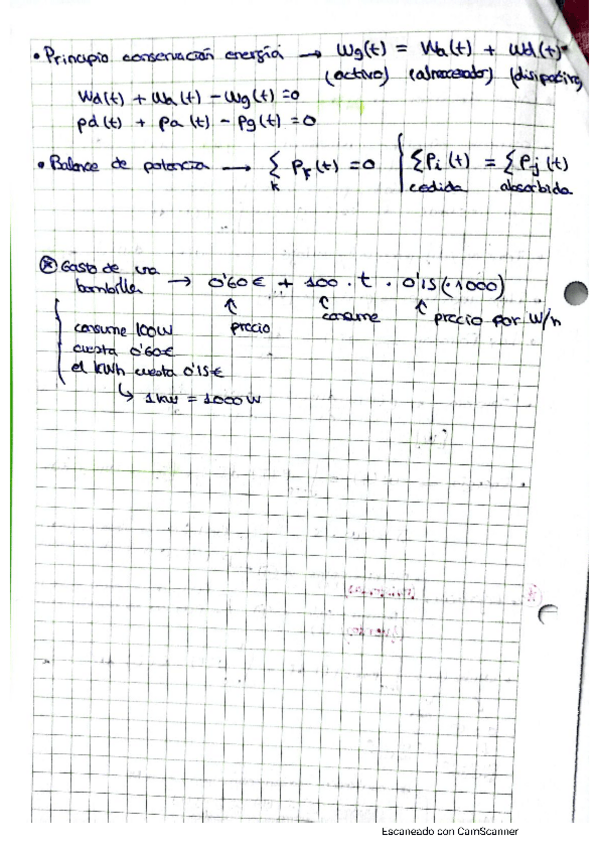 • Principio conservación energía → Wg(t) = Wa(t) + Wd(t)
(activo) (almacenador) (disipativo)
Wd(t) + Wa(t) - Wg(t) = 0
pd(t) + pa(t) - pg(t) = 0
• Balance de potencia → Σ Pk(t) = 0 | ΣPi(t) = ΣPj(t)
k cedida absorbida
⊛ Gasto de una
bombilla → 0'60€ + 100 · t · 0'15(·1000)
↑ precio ↑ consume ↑ precio por W/h
consume 100W
cuesta 0'60€
el kWh cuesta 0'15€
↳ 1kW = 1000W
Escaneado con CamScanner